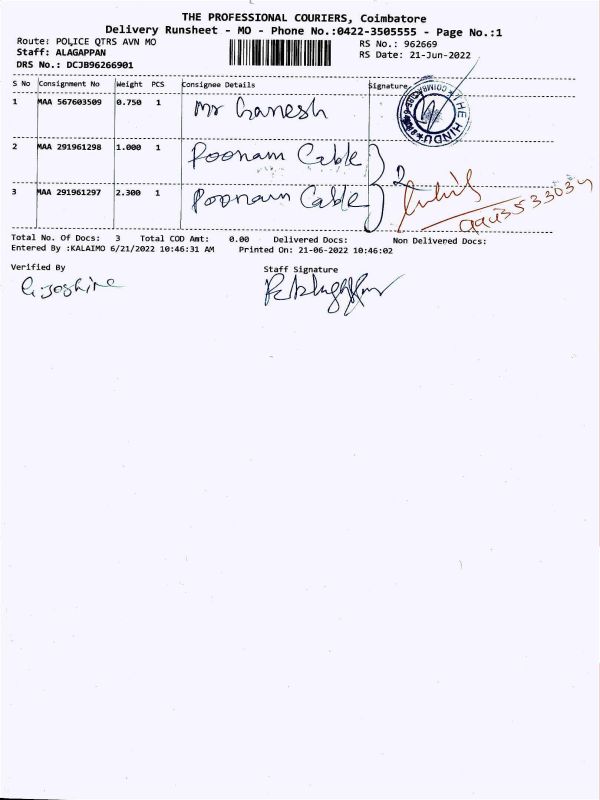 THE PROFESSIONAL COURIERS, Coimbatore
Delivery Runsheet - MO - Phone No.:0422-3505555 - Page No.:1
Route: POLICE QTRS AVN MO RS No.: 962669
Staff: ALAGAPPAN RS Date: 21-Jun-2022
DRS No.: DCJB96266901
S No Consignment No Weight PCS Consignee Details Signature
1 MAA 567603509 0.750 1 Mr Ganesh
THE HINDU
2 MAA 291961298 1.000 1 Poonam Cable
2
3 MAA 291961297 2.300 1 Poonam Cable
Total No. Of Docs: 3 Total COD Amt: 0.00 Delivered Docs: Non Delivered Docs:
Entered By :KALAIMO 6/21/2022 10:46:31 AM Printed On: 21-06-2022 10:46:02
Verified By Staff Signature